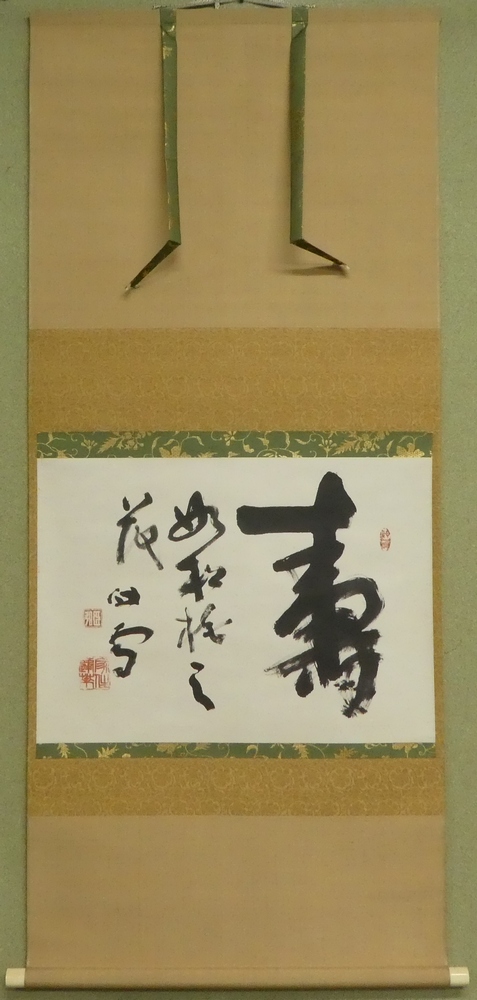 壽
如松柏之
茂